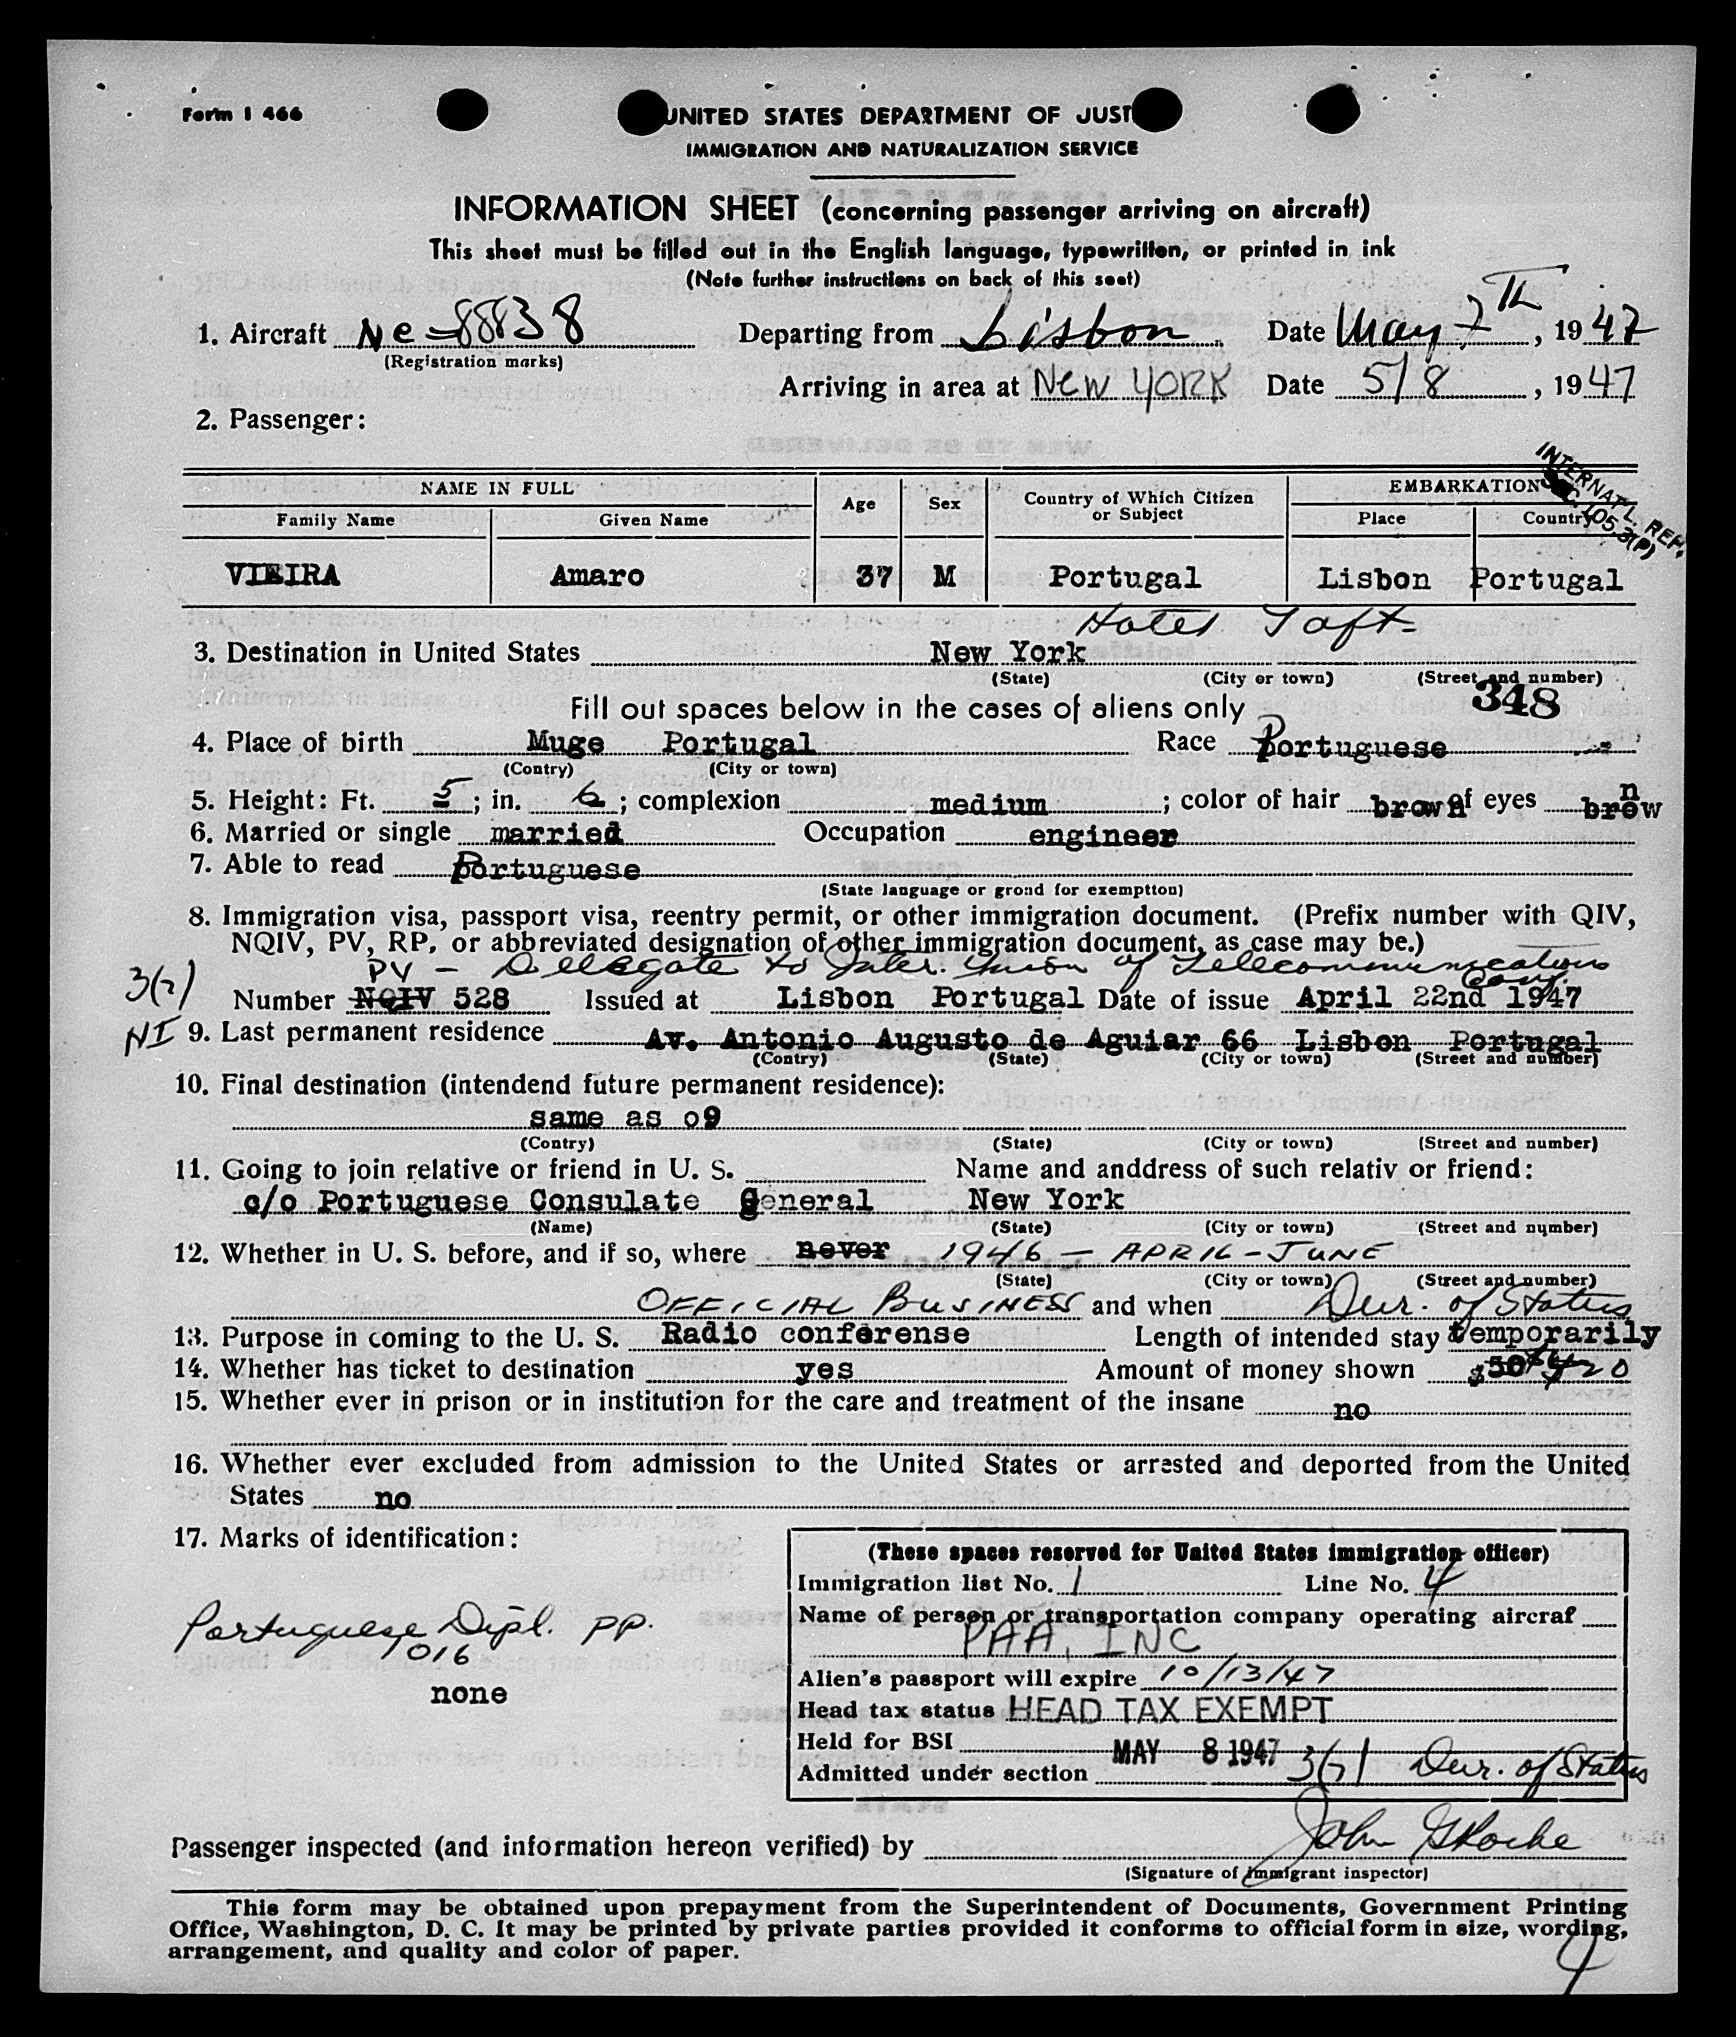 Form I 466
UNITED STATES DEPARTMENT OF JUST
IMMIGRATION AND NATURALIZATION SERVICE
INFORMATION SHEET (concerning passenger arriving on aircraft)
This sheet must be filled out in the English language, typewritten, or printed in ink
(Note further instructions on back of this seet)
1. Aircraft Nc-88838 Departing from Lisbon Date May 7th, 1947
(Registration marks)
Arriving in area at New York Date 5/8, 1947
2. Passenger:
INTERNATL. REP.
SEC. 105.3(P)
NAME IN FULL Age Sex Country of Which Citizen or Subject EMBARKATION
Family Name Given Name Place Country
VIEIRA Amaro 37 M Portugal Lisbon Portugal
Hotel Taft
3. Destination in United States New York
(State) (City or town) (Street and number)
348
Fill out spaces below in the cases of aliens only
4. Place of birth Muge Portugal Race Portuguese
(Contry) (City or town)
5. Height: Ft. 5; in. 6; complexion medium; color of hair brown of eyes brown
6. Married or single married Occupation engineer
7. Able to read Portuguese
(State language or grond for exemptton)
8. Immigration visa, passport visa, reentry permit, or other immigration document. (Prefix number with QIV,
NQIV, PV, RP, or abbreviated designation of other immigration document, as case may be.)
3(7) PV - Dellegate to Inter. Union of Telecommunications Conf.
Number NQIV 528 Issued at Lisbon Portugal Date of issue April 22nd 1947
NI 9. Last permanent residence Av. Antonio Augusto de Aguiar 66 Lisbon Portugal
(Contry) (State) (City or town) (Street and number)
10. Final destination (intendend future permanent residence):
same as o9
(Contry) (State) (City or town) (Street and number)
11. Going to join relative or friend in U. S. Name and anddress of such relativ or friend:
c/o Portuguese Consulate General New York
(Name) (State) (City or town) (Street and number)
12. Whether in U. S. before, and if so, where never 1946 - APRIL - JUNE
(State) (City or town) (Street and number)
OFFICIAL BUSINESS and when Dur. of Status
13. Purpose in coming to the U. S. Radio conferense Length of intended stay temporarily
14. Whether has ticket to destination yes Amount of money shown $50
15. Whether ever in prison or in institution for the care and treatment of the insane no
16. Whether ever excluded from admission to the United States or arrested and deported from the United
States no
17. Marks of identification:
Portuguese Dipl. PP.
1016
none
(These spaces reserved for United States immigration officer)
Immigration list No. 1 Line No. 4
Name of person or transportation company operating aircraf
PAA, INC
Alien's passport will expire 10/13/47
Head tax status HEAD TAX EXEMPT
Held for BSI MAY 8 1947
Admitted under section 3(7) Dur. of Status
Passenger inspected (and information hereon verified) by John
(Signature of immigrant inspector)
This form may be obtained upon prepayment from the Superintendent of Documents, Government Printing
Office, Washington, D. C. It may be printed by private parties provided it conforms to official form in size, wording,
arrangement, and quality and color of paper.
4